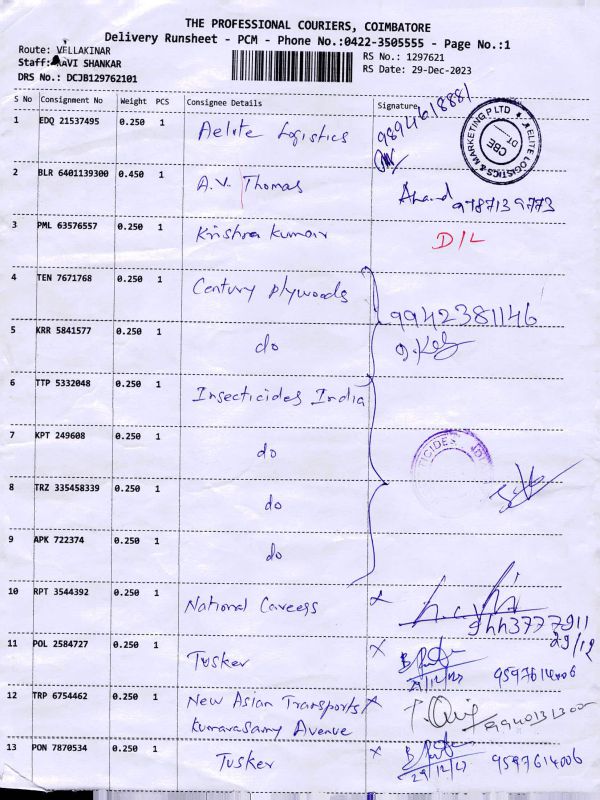 THE PROFESSIONAL COURIERS, COIMBATORE
Delivery Runsheet - PCM - Phone No.:0422-3505555 - Page No.:1
Route: VELLAKINAR
RS No : 1297621
Staff: RAVI SHANKAR
RS Date: 29-Dec-2023
DRS No.: DCJB129762101
S No Consignment No Weight PCS Consignee Details Signature
1 EDQ 21537495 0.250 1 Aelite Logistics 9894618881
ELITE LOGISTICS & MARKETING P LTD
CBE
DT:
2 BLR 6401139300 0.450 1 A.V. Thomas Anand 9787139773
3 PML 63576557 0.250 1 Krishna Kumar D/L
4 TEN 7671768 0.250 1 Century plywoods 9942381146
5 KRR 5841577 0.250 1 do
6 TTP 5332048 0.250 1 Insecticides India
7 KPT 249608 0.250 1 do
8 TRZ 335458339 0.250 1 do
9 APK 722374 0.250 1 do
10 RPT 3544392 0.250 1 National Careers x
29/12
11 POL 2584727 0.250 1 Tusker x 29/12/23 9597614006
12 TRP 6754462 0.250 1 New Asian Transports x
Kumarasamy Avenue
13 PON 7870534 0.250 1 Tusker x 29/12/23 9597614006